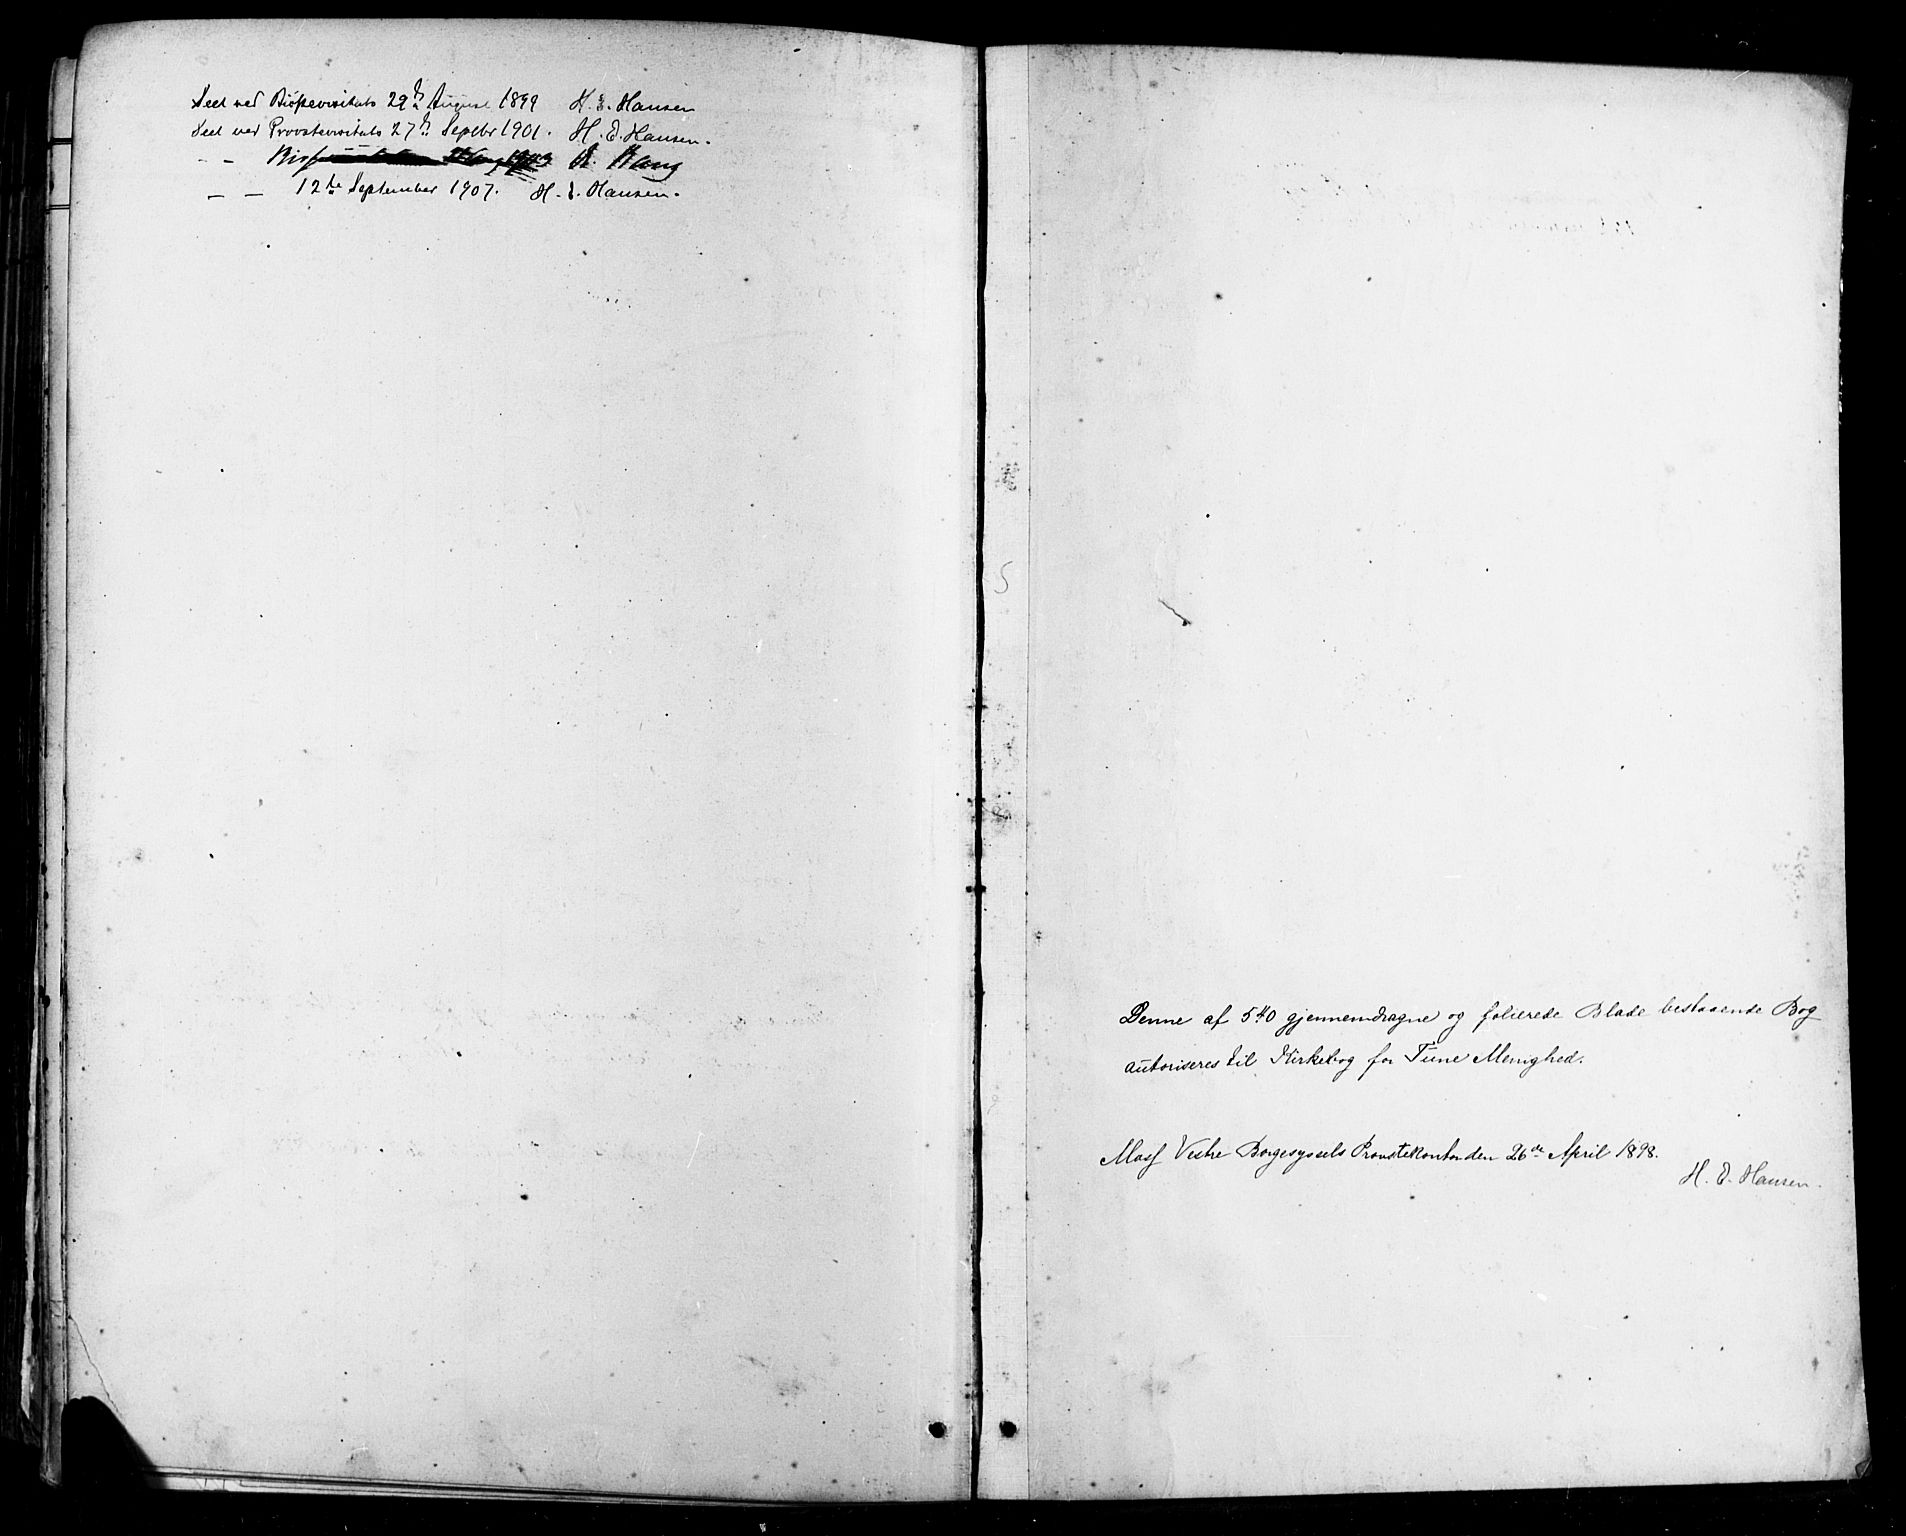 Seet ved Bispevisitats 29de August 1899 H. E. Hansen
Seet ved Provstevisitats 27de Septbr 1901. H. E. Hansen.
- - 1903 A. Bang
- - 12te September 1907. H. E. Hansen.
Denne af 540 gjennemdragne og folierede Blade bestaaende Bog
autoriseres til Kirkebog for Tune Menighed.
Moss Vestre Borgesyssels Provstekontor den 26de April 1898.
H. E. Hansen.